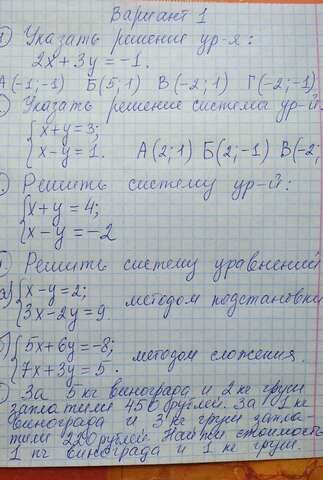 Вариант 1
1) Указать решение ур-я:
2x+3y=-1.
А(-1;-1) Б(5;1) В(-2;1) Г(-2;-1)
Указать решение системы ур-й
{x+y=3;
{x-y=1. А(2;1) Б(2;-1) В(-2;
Решить систему ур-й:
{x+y=4;
{x-y=-2
Решить систему уравнений
а){x-y=2; методом подстановки
{3x-2y=9
б){5x+6y=-8; методом сложения.
{7x+3y=5.
За 5 кг винограда и 2 кг груш
заплатили 450 рублей. За 1 кг
винограда и 3 кг груш запла-
тили 220 рублей. Найти стоимость
1 кг винограда и 1 кг груш.